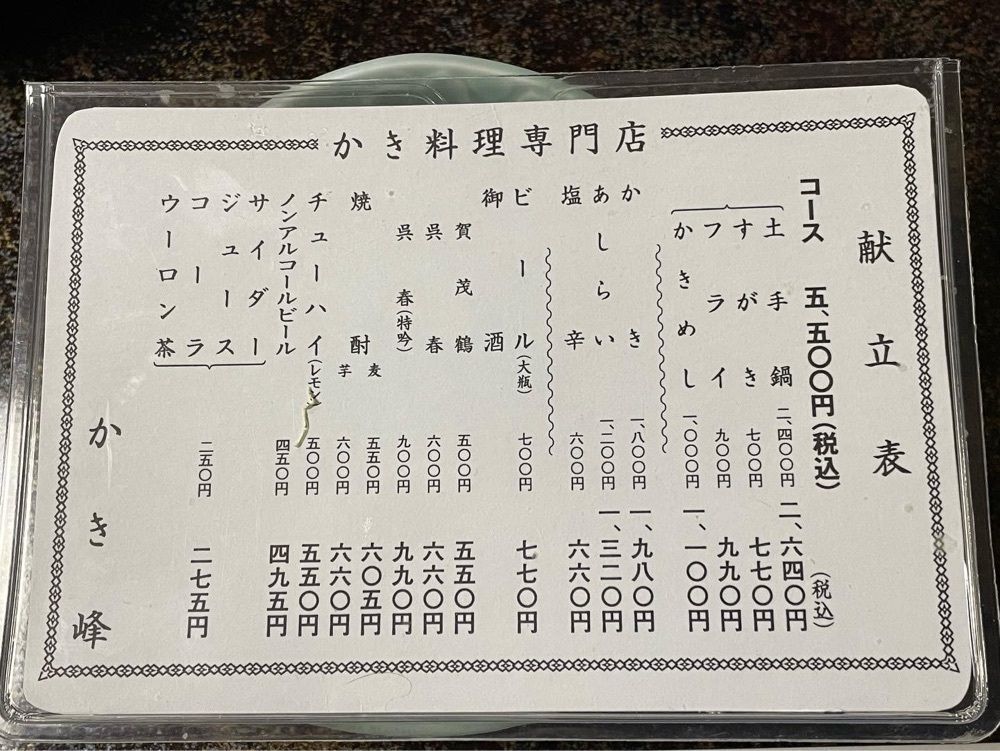 かき料理専門店
献立表
コース 五、五〇〇円(税込)
土手鍋 二、四〇〇円 二、六四〇円(税込)
すがき 七〇〇円 七七〇円
フライ 九〇〇円 九九〇円
かきめし 一、〇〇〇円 一、一〇〇円
かき 一、八〇〇円 一、九八〇円
あしらい 一、二〇〇円 一、三二〇円
塩辛 六〇〇円 六六〇円
ビール(大瓶) 七〇〇円 七七〇円
御酒
賀茂鶴 五〇〇円 五五〇円
呉春 六〇〇円 六六〇円
呉春(特吟) 九〇〇円 九九〇円
焼酎
麦 五五〇円 六〇五円
芋 六〇〇円 六六〇円
チューハイ(レモン) 五〇〇円 五五〇円
ノンアルコールビール 四五〇円 四九五円
サイダー
ジュース
コーラ
ウーロン茶
二五〇円 二七五円
かき峰